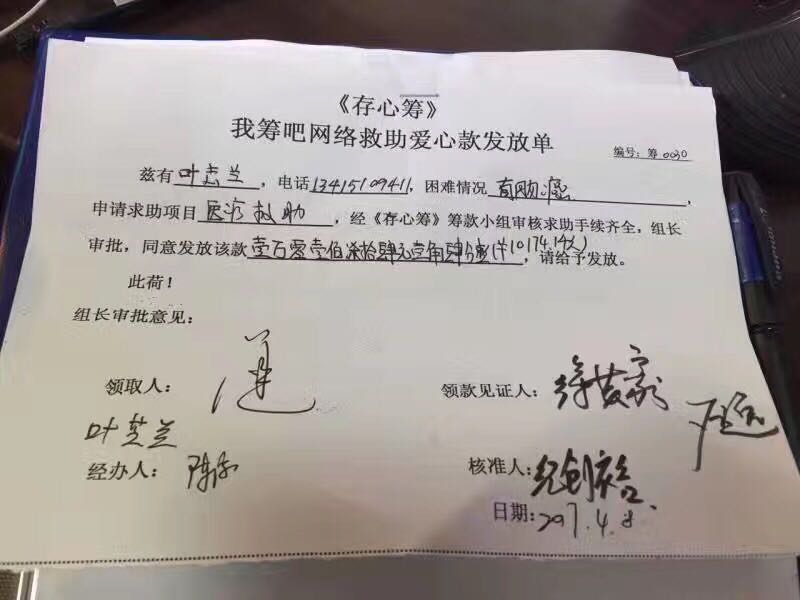 《存心筹》
我筹吧网络救助爱心款发放单
编号：筹0030
兹有叶芝兰，电话13415109411，困难情况直肠癌，
申请求助项目医疗救助，经《存心筹》筹款小组审核求助手续齐全，组长
审批，同意发放该款壹万零壹佰柒拾肆元壹角肆分整(¥10174.14元)，请给予发放。
此荷！
组长审批意见：
领取人：
领款见证人：
叶芝兰
经办人：
核准人：
日期：2017.4.8